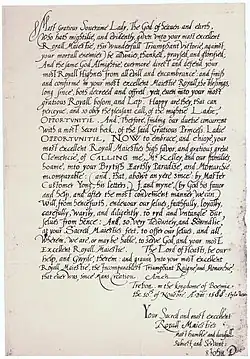 Most Gratious Soveraine Lady, The God of heaven and earth,
(Who hath mightilie, and evidently, given unto your most excellent
Royall Maiestie, this wunderfull Triumphant victorie, against
your mortall enemies) be allwaies, thanked, praysed, and glorified:
And the same God Almightie, evermore direct and defend your
most Royall Highnes from all evill and encumbrance: and finish
and confirme in your most excellent Maiestie Royall, the blessings,
long since, both decreed and offred: yea, even into your most
gratious Royall bosom, and Lap. Happy are they, that can
perceyve, and so obey the pleasant call, of the mightie Ladie,
OPPORTUNITIE. And, Therfore, finding our duetie concurrent
with a most Secret beck, of the said Gratious Princess, Ladie
OPPORTUNITIE, NOW to embrace, and enioye, your
most excellent Royall Maiesties high favor, and gratious great
Clemencie, of CALLING me, Mr Kelley, and our families,
hoame, into your Brytish Earthly Paradise, and Monarchie,
incomparable: (and, that, abowt an yere since, by Master
Customer Yong, his letters,) I, and myne, (by God his favor
and help, and after the most convenient manner, we can,)
Will, from hencefurth, endevour our selves, faithfully, loyally,
carefully, warily, and diligently, to ryd and untangle our
selves from hence: And so, very devowtely, and Sowndlie,
at your Sacred Maiesties feet, to offer our selves, and all,
wherein, we are, or may be hable, to serve God, and your most
Excellent Royall Maiestie. The Lord of Hoasts, be our
help, and Gwyde, therein: and graunt unto your most excellent
Royall Maiestie, the Incomparablest Triumphant Raigne, and Monarchie,
that ever was, since Mans creation. Amen.
Trebon. in the kingdome of Boemia,
the 10th of Novembre: A. Dm: 1588: stylo veteri
Your Sacred and most excellent
Royall Maiesties
most humble and dutifull
Subiect, and Servant:
John Dee